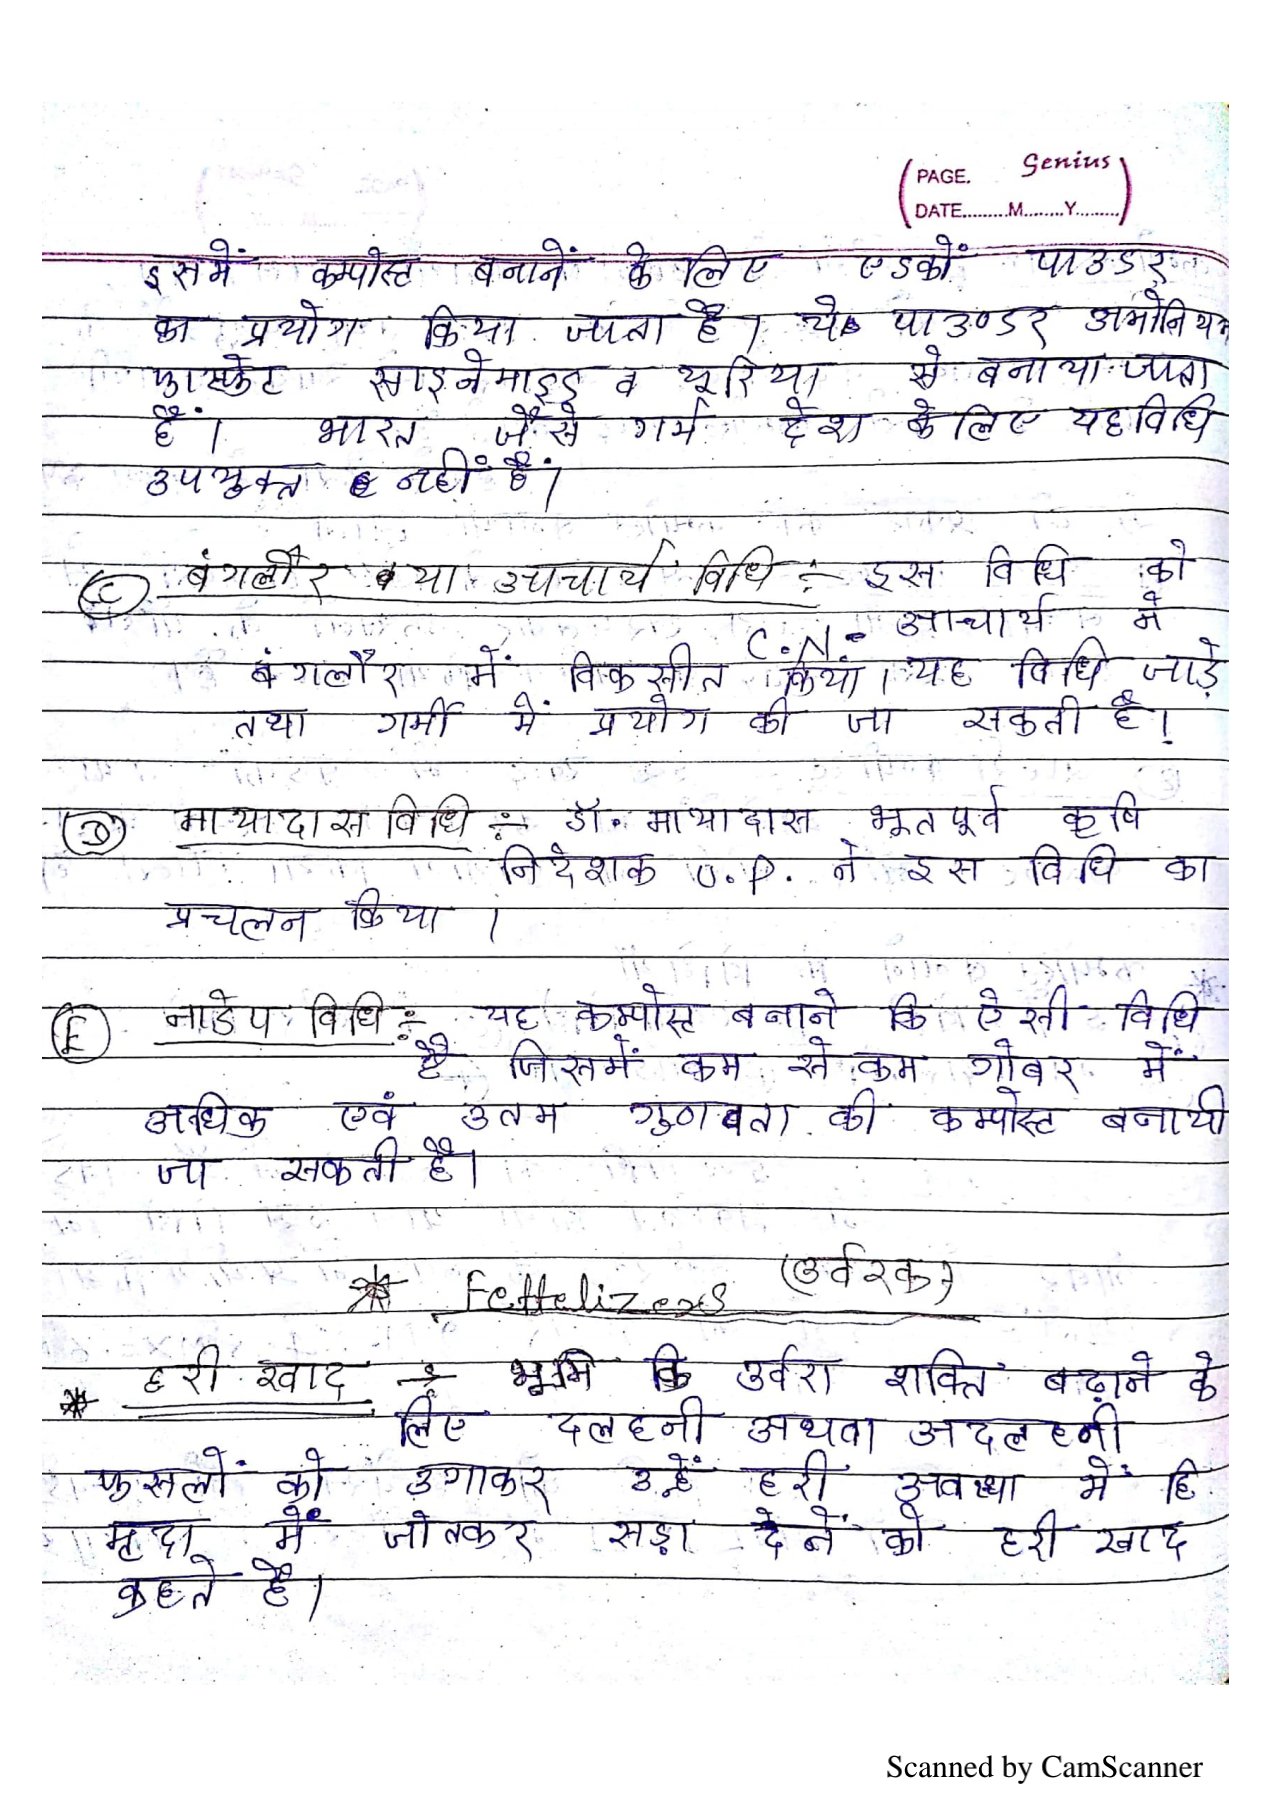 Genius
PAGE.
DATE.........M........Y.........
इसमें कम्पोस्ट बनानें के लिए एडकों पाउडर
का प्रयोग किया जाता है। ये पाउण्डर अमोनियम
फास्फेट साइनेमाइड व यूरिया से बनाया जाता
हैं। भारत जैसे गर्म देश के लिए यह विधि
उपयुक्त नहीं हैं।
(C) बंगलौर या उाचार्य विधि :- इस विधि को
C.N. आचार्य ने
बंगलौर में विकसीत किया। यह विधि जाड़े
तथा गर्मी में प्रयोग की जा सकती है।
(D) मायादास विधि :- डॉ. मायादास भूतपूर्व कृषि
निदेशक U.P. ने इस विधि का
प्रचलन किया।
(E) नाडेप विधि :- यह कम्पोस्ट बनाने कि ऐसी विधि
है जिसमें कम से कम गोबर में
अधिक एवं उतम गुणवता की कम्पोस्ट बनायी
जा सकती है।
* Fertelizers (उर्वरक)
* हरी खाद → भूमि कि उर्वरा शक्ति बढ़ाने के
लिए दलहनी अथवा अदलहनी
फसलों को उगाकर उन्हें हरी अवस्था में हि
मृदा में जोतकर सड़ा देनें को हरी खाद
कहते है।
Scanned by CamScanner